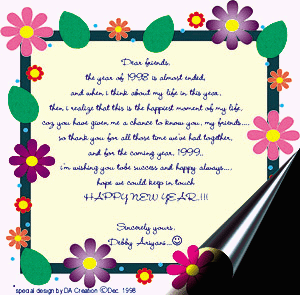 Dear friends,
the year of 1998 is almost ended,
and when i think about my life in this year,
then i realize that this is the happiest moment of my life,
coz you have given me a chance to know you, my friends....
so thank you for all those time we've had together,
and for the coming year, 1999..
i'm wishing you tobe success and happy always....
hope we could keep in touch
HAPPY NEW YEAR!!!
Sincerely yours,
Debby Ariyani...
*special design by DA Creation ©Dec. 1998